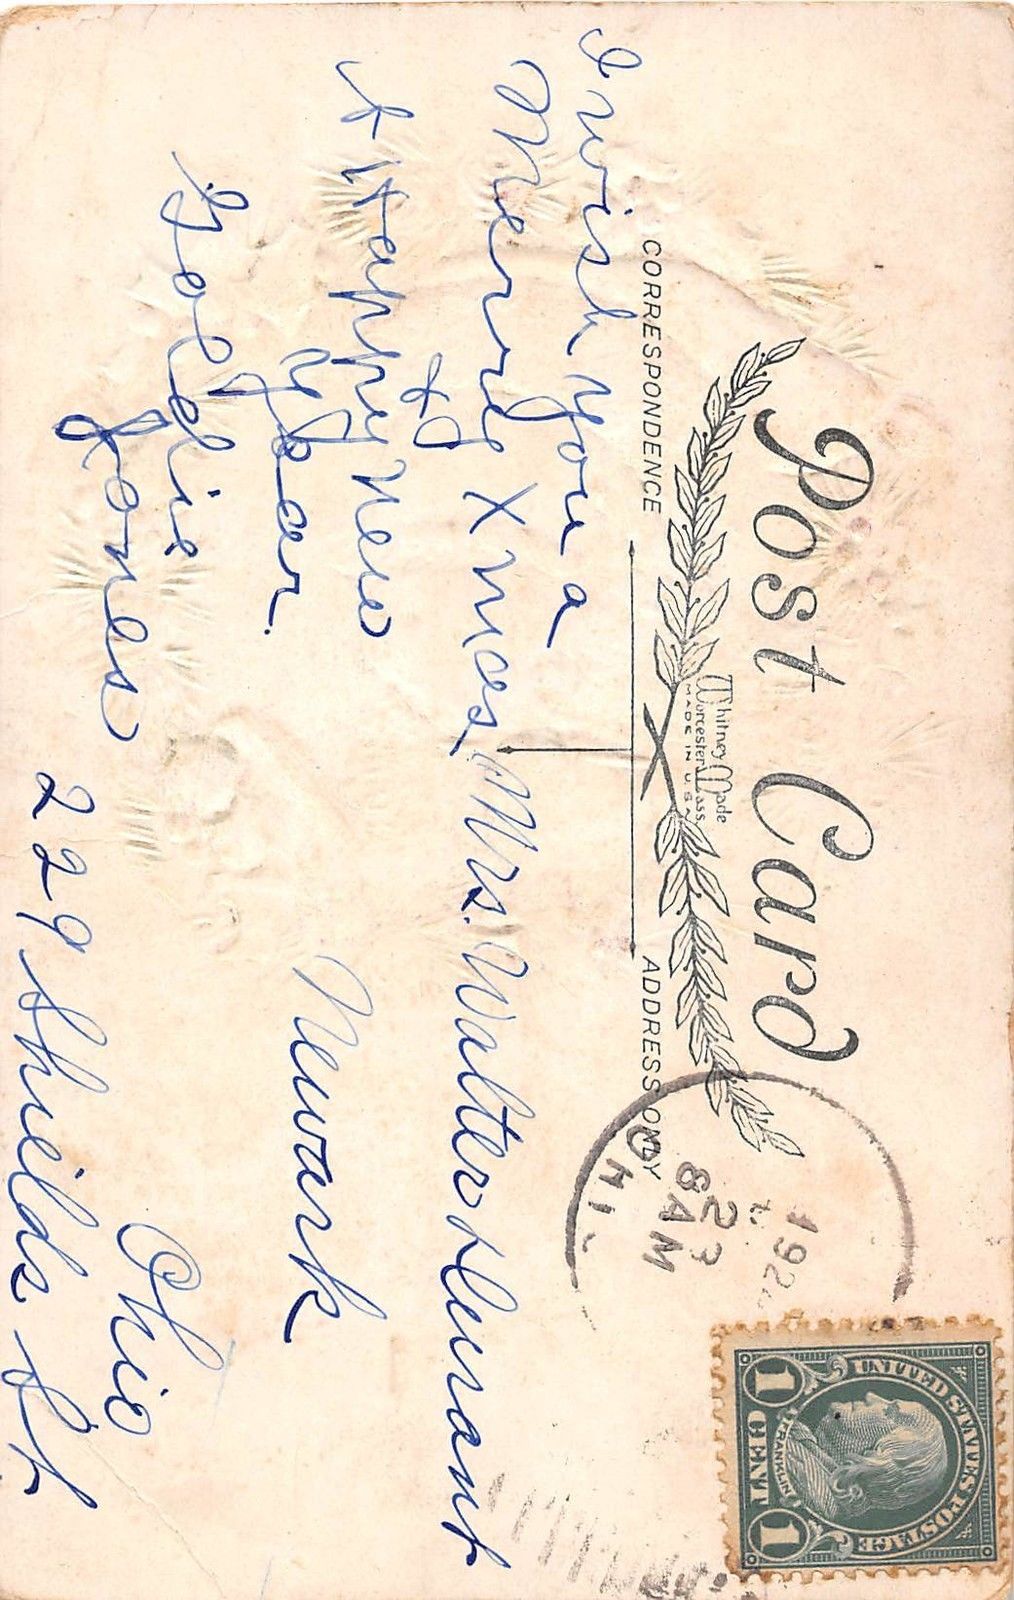 Post Card
Whitney Made
Worcester, Mass
MADE IN U.S.A
CORRESPONDENCE
ADDRESS ONLY
I wish you a
Merry Xmas
&
A Happy New
Year.
Goldie
Jones
Mrs. Walter
Newark
Ohio
229 Sheilds St
192
23
8 AM
OHI
UNITED STATES POSTAGE
FRANKLIN
1 CENT 1